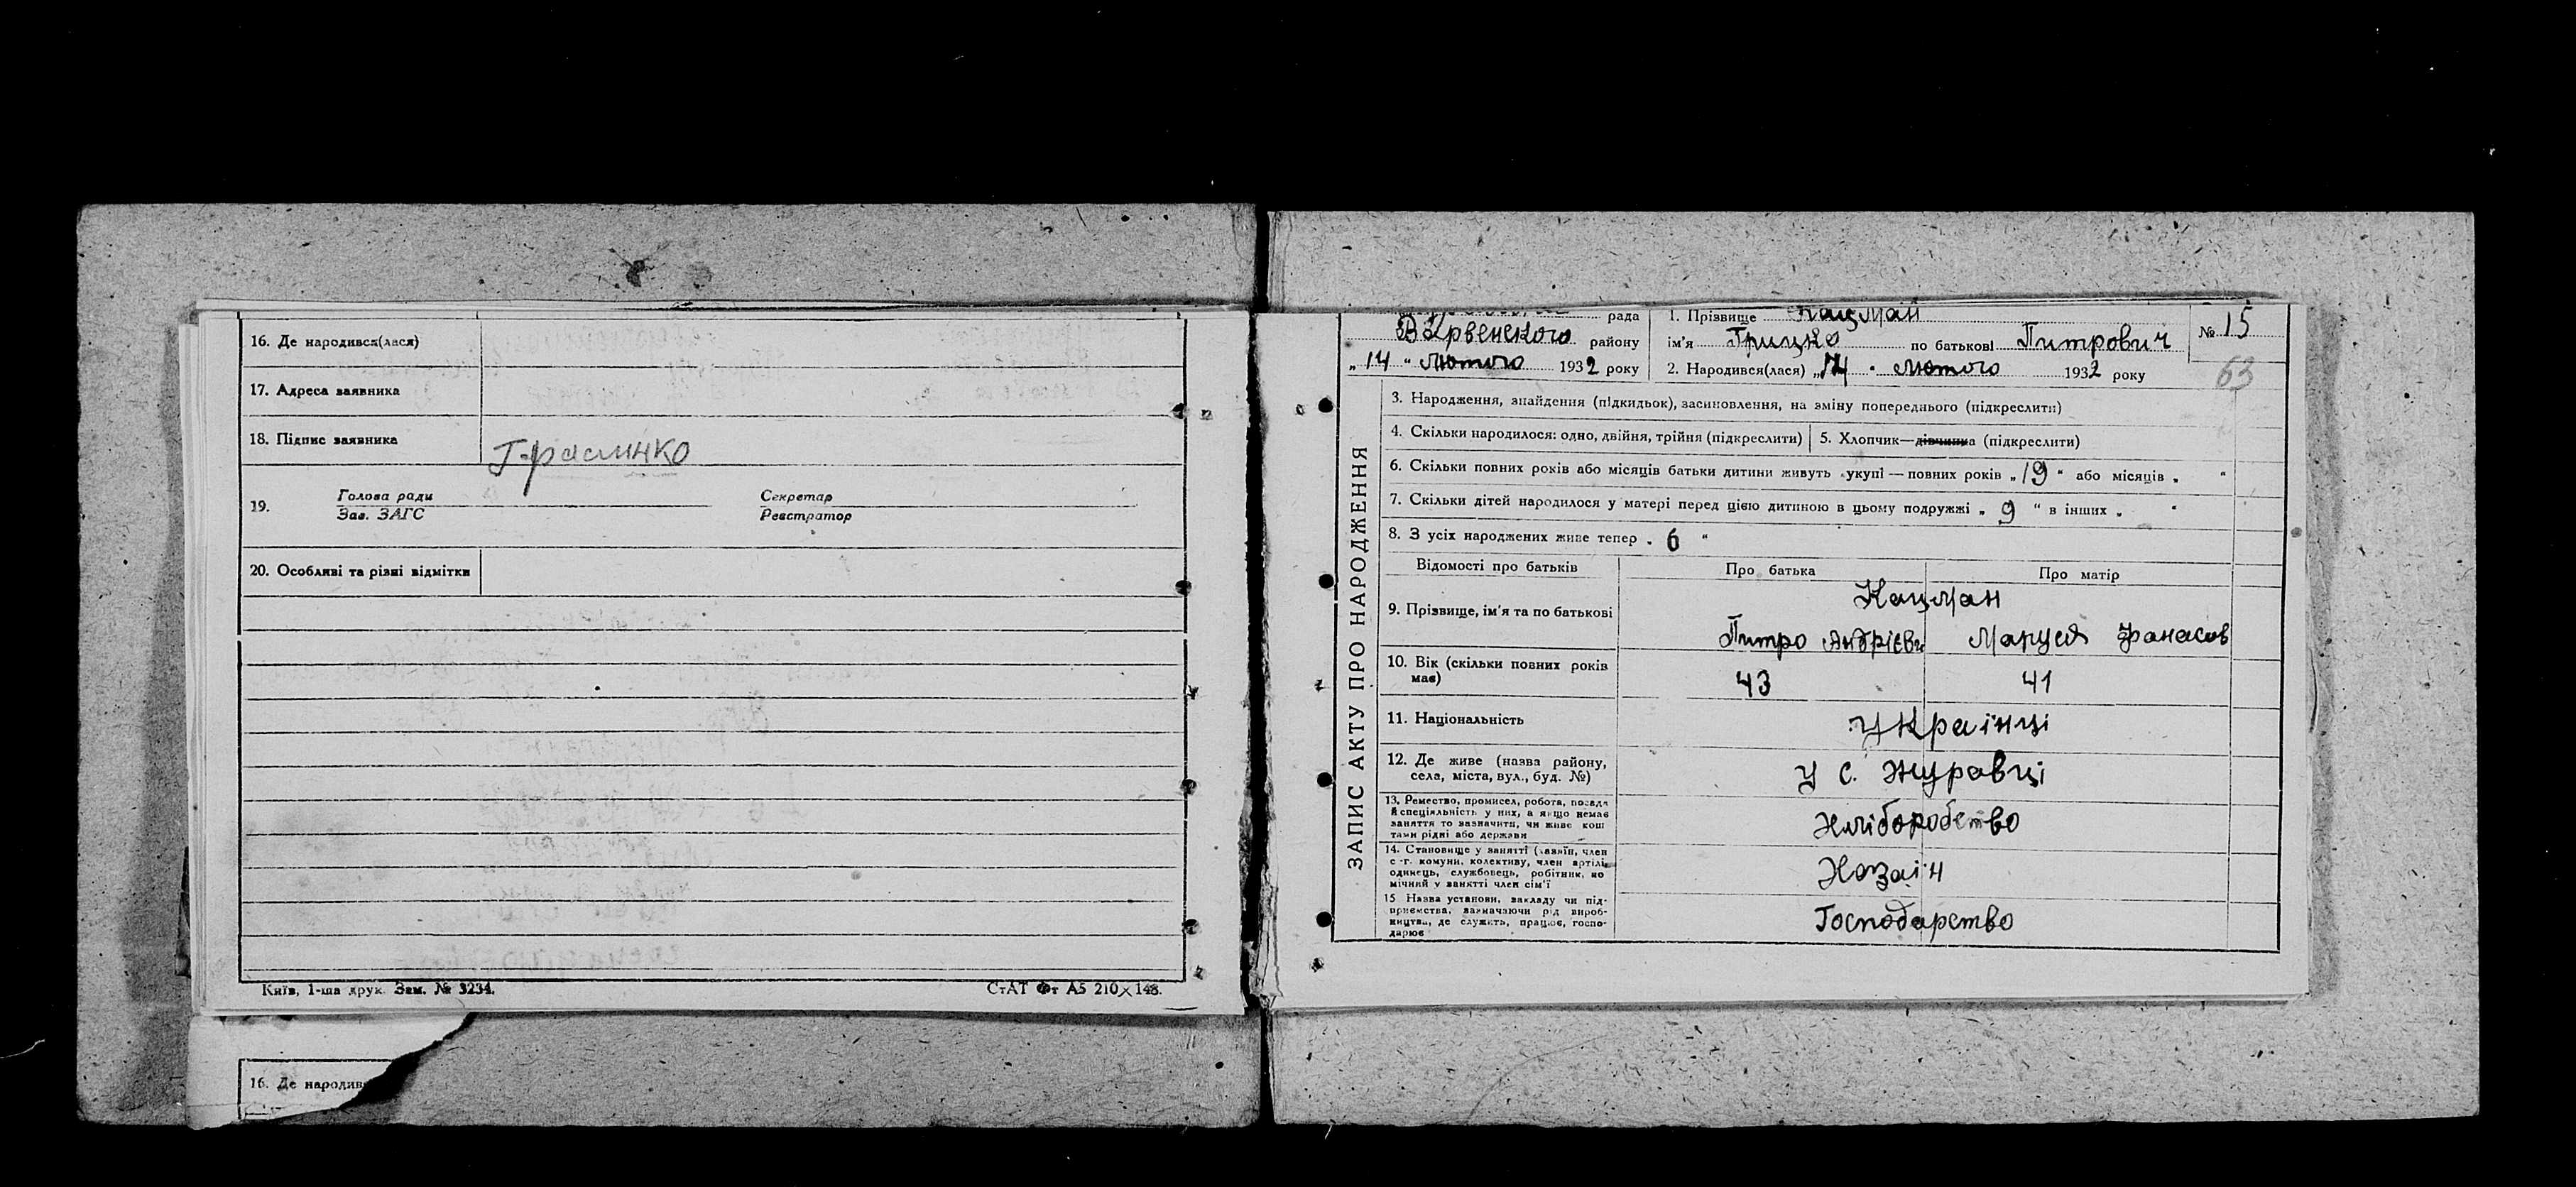 16. Де народився(лася)
17. Адреса заявника
18. Підпис заявника
Грасинко
19. Голова ради Секретар
Зав. ЗАГС Реєстратор
20. Особливі та різні відмітки
Київ, 1-ша друк. Зам. № 3234. СтАТ Фт А5 210×148.
16. Де народив
ЗАПИС АКТУ ПРО НАРОДЖЕННЯ
рада
Варвенского району
„14 “ Лютого 1932 року
1. Прізвище Кацман
ім'я Грицко по батькові Питрович
2. Народився(лася) „14 “ лютого 1932 року
№ 15
63
3. Народження, знайдення (підкидьок), засиновлення, на зміну попереднього (підкреслити)
4. Скільки народилося: одно, двійня, трійня (підкреслити) 5. Хлопчик—дівчинка (підкреслити)
6. Скільки повних років або місяців батьки дитини живуть укупі — повних років „19“ або місяців „ “
7. Скільки дітей народилося у матері перед цією дитиною в цьому подружжі „ 9 “ в інших „ “
8. З усіх народжених живе тепер „ 6 “
Відомості про батьків Про батька Про матір
9. Прізвище, ім'я та по батькові
Кацман
Питро Андрієви Маруся Фанасов
10. Вік (скільки повних років має)
43 41
11. Національність Українці
12. Де живе (назва району,
села, міста, вул., буд. №)
У с. Журавці
13. Ремество, промисел, робота, посада
й спеціяльність у них, а якщо немає
заняття то зазначити, чи живе кош
тами рідні або держави
Хліборобство
14. Становище у занятті (хазяїн, член
с.-г. комуни, колективу, член артілі,
одинець, службовець, робітник, по
мічний у занятті член сім'ї
Хозаін
15 Назва установи, закладу чи під-
приємства, зазначаючи рід вироб-
ництва, де служить, працює, госпо-
дарює
Господарство